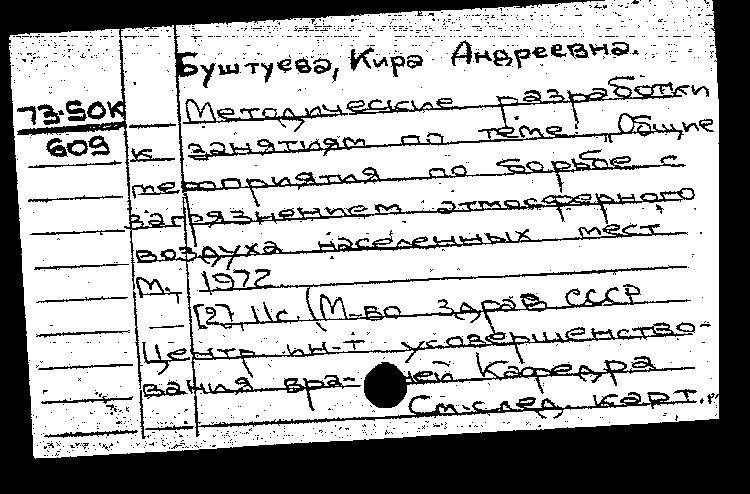 Буштуева, Кира Андреевна.
73-50К
609
Методические разработки
к занятиям по теме: „Общие
мероприятия по борьбе с
загрязнением атмосферного
воздуха населенных мест
М., 1972
[2], 11с. (М-во здрав СССР
Центр ин-т усовершенство-
вания вра-чей Кафедра
См. след. карт.